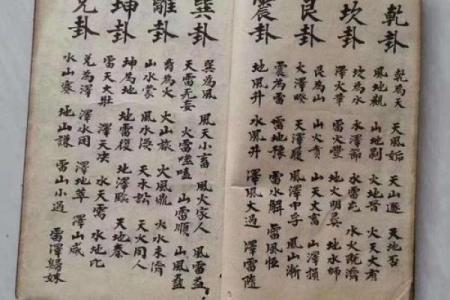 乾卦
乾為天 天風姤 天山遯 天地否
風地觀 山地剝 火地晉 火天大有
坎卦
坎為水 水澤節 水雷屯 水火既濟
澤火革 雷火豐 地火明夷 地水師
艮卦
艮為山 山火賁 山天大畜 山澤損
火澤睽 天澤履 風澤中孚 風山漸
震卦
震為雷 雷地豫 雷水解 雷風恆
地風升 水風井 澤風大過 澤雷隨
巽卦
巽為風 風天小畜 風火家人 風雷益
天雷无妄 火雷噬嗑 山雷頤 山風蠱
離卦
离為火 火山旅 火風鼎 火水未濟
山水蒙 風水渙 天水訟 天火同人
坤卦
坤為地 地雷復 地澤臨 地天泰
雷天大壯 澤天夬 水天需 水地比
兌卦
兌為澤 澤水困 澤地萃 澤山咸
水山蹇 地山謙 雷山小過 雷澤歸妹